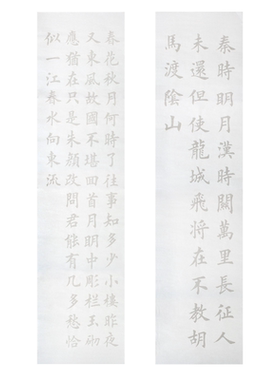 秦時明月漢時關萬里長征人
未還但使龍城飛將在不教胡
馬渡陰山
春花秋月何時了往事知多少小樓昨夜
又東風故國不堪回首月明中彫栏玉砌
應猶在只是朱顏改問君能有几多愁恰
似一江春水向東流